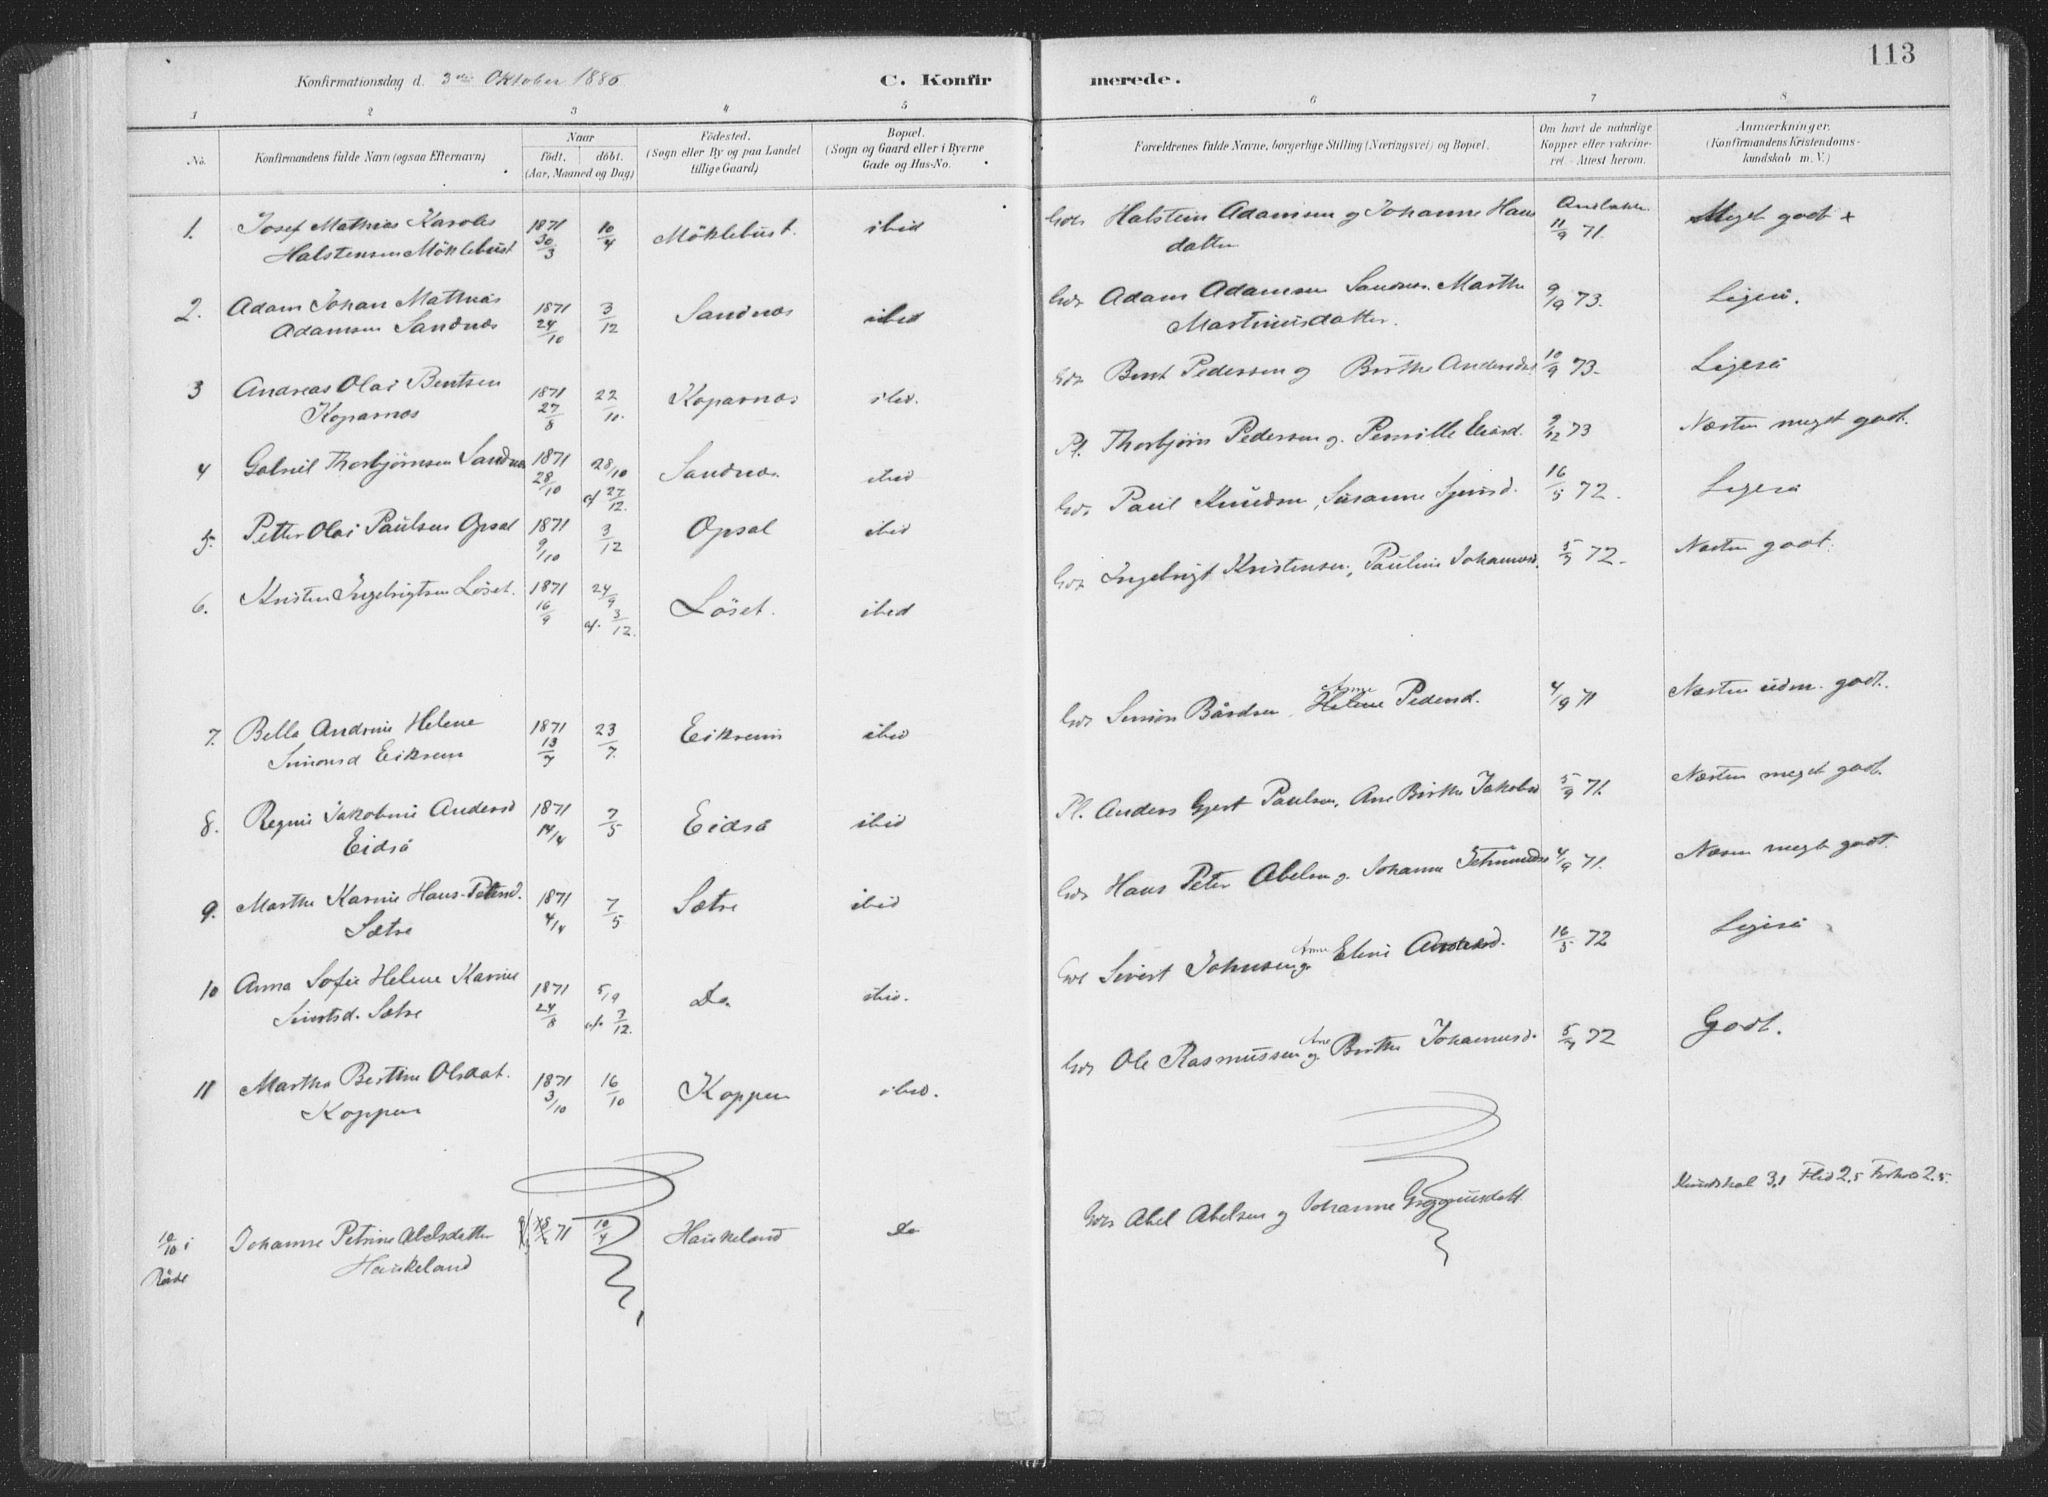 113
Konfirmationsdag d. 3die Oktober 1886
C. Konfirmerede.
1 2 3 4 5 6 7 8
No.
Konfirmandens fulde Navn (ogsaa Efternavn)
Naar
födt. döbt.
(Aar, Maaned og Dag)
Födested.
(Sogn eller By og paa Landet
tillige Gaard)
Bopæl.
(Sogn og Gaard eller i Byerne
Gade og Hus-No.
Forældrenes fulde Navne, borgerlige Stilling (Næringsvei) og Bopæl.
Om havt de naturlige
Kopper eller vakcine-
ret. - Attest herom.
Anmærkninger.
(Konfirmandens Kristendoms-
kundskab m. V.)
1. Josef Mathias Karolus 1871 10/4 Möklebust. ibid Gdr Halstein Adamsen og Johanne Hans
Halstensen Möklebust 30/3 datter 11/9 71. Meget godt +
2. Adam Johan Mathias 1871 3/12 Sandnæs ibid Gdr Adam Adamsen Sandnæs. Marthe 9/9 73. Ligeså.
Adamsen Sandnæs 24/10 Martinusdatter.
3 Andreas Olai Bentsen 1871 22/10. Koparnæs ibid. Gdr Bent Pedersen og Birthe Andersd. 10/9 73. Ligeså
Koparnæs 27/8
4 Gabriel Thorbjørnsen Sandnæs 1871 28/10 Sandnæs. ibid Pl. Thorbjörn Pedersen og Pernille 9/12 73 Næsten meget godt.
28/10 27/12.
5. Petter Olai Paulsen Opsal 1871 3/12 Opsal ibid Gdr Paul Knudsen, Susanne 16/5 72. Ligeså
9/10
6. Kristen Ingebrigtsen Löset. 1871 24/9 Löset. ibid Gdr Ingebrigt Kristensen, Pauline Johannesd. 72. Næsten godt.
16/9 3/12.
7. Bella Andrine Helene 1871 23/7. Eiksem ibid Gdr Simon Bårdsen, Anne Helene Pedersd. 4/9 71 Næsten udm. godt.
Simonsd Eiksem 13/7
8. Regine Jakobine Andersd 1871 7/5 Eidså ibid Pl. Anders Gjert Paulsen, Ane Birthe Jakobsd 5/9 71. Næsten meget godt.
Eidså 14/4
9. Marthe Karine Hans-Petersd. 1871 7/5 Sætre ibid Gdr Hans Peter Abelsen og Johanne 4/9 71. Næsten meget godt.
Sætre 4/4
10 Anna Sofie Helene Karine 1871 5/9 Do. ibid. Gdr Sivert Johnsen og Anne Eline 16/5 72 Ligeså
Sivertsd. Sætre 24/8 3/12.
11 Martha Bertine Olsdat. 1871 16/10 Koppen ibid. Gdr Ole Rasmussen og Ane Birthe Johannesd. 72 Godt.
Koppen 3/10
10/10 i Johanne Petrine Abelsdatter 71 10/4 Haukeland Do Gdr Abel Abelsen og Johanne Gregoriusdatt. Kundskab 3,1 Flid 2,5 Forhold 2.5.
Haukeland